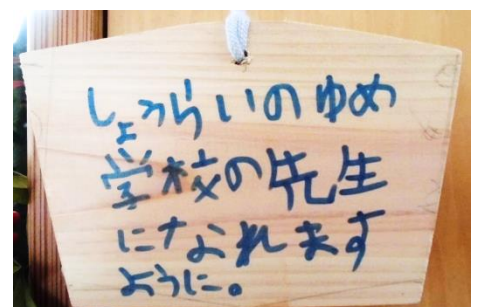 しょうらいのゆめ
学校の先生
になれます
ように。